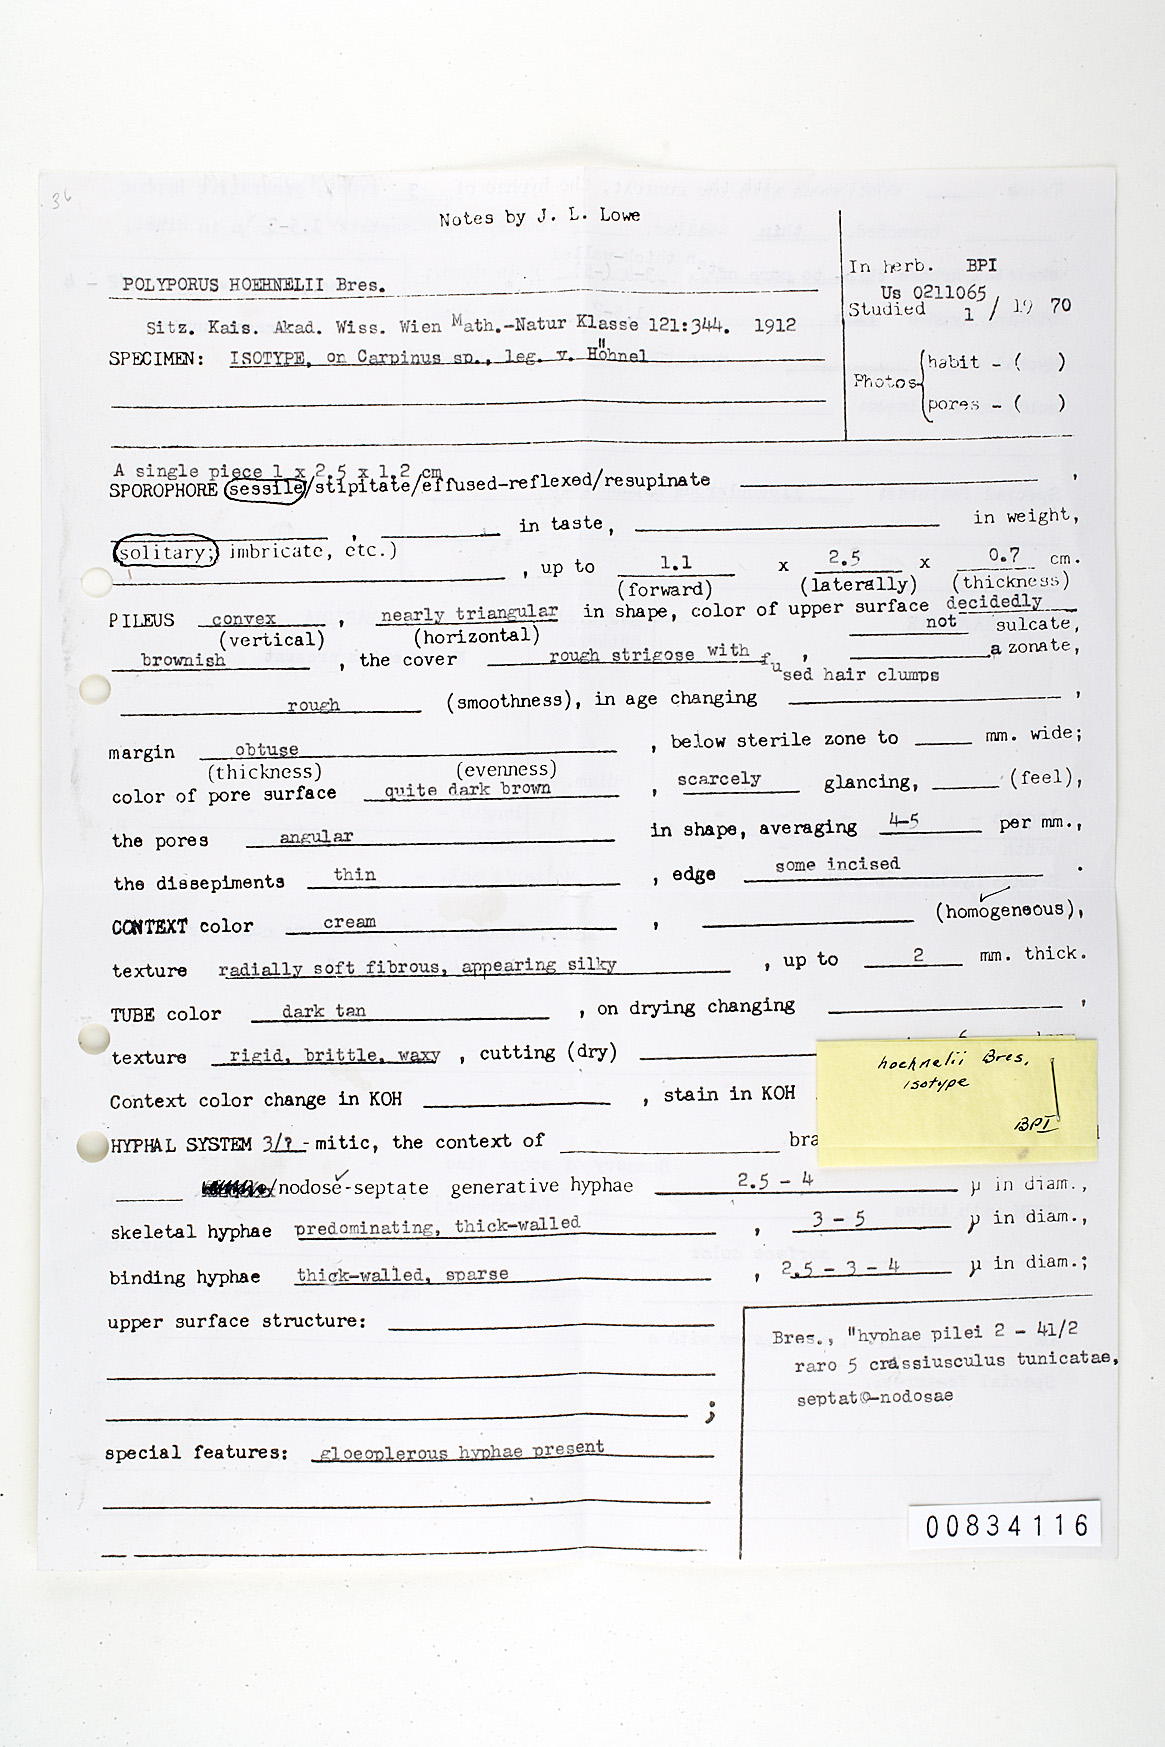 36
Notes by J. L. Lowe
In herb. BPI
Us 0211065
Studied 1 / 19 70
POLYPORUS HOEHNELII Bres.
Sitz. Kais. Akad. Wiss. Wien Math.-Natur Klasse 121:344. 1912
SPECIMEN: ISOTYPE, on Carpinus sp., leg. v. Höhnel
Photos
habit - ( )
pores - ( )
A single piece 1 x 2.5 x 1.2 cm
SPOROPHORE (sessile/stipitate/effused-reflexed/resupinate ,
, in taste, in weight,
(solitary; imbricate, etc.)
, up to 1.1 x 2.5 x 0.7 cm.
(forward) (laterally) (thickness)
PILEUS convex , nearly triangular in shape, color of upper surface decidedly
(vertical) (horizontal) not sulcate,
brownish , the cover rough strigose with fused hair clumps , azonate,
rough (smoothness), in age changing ,
margin obtuse , below sterile zone to mm. wide;
(thickness) (evenness)
color of pore surface quite dark brown , scarcely glancing, (feel),
the pores angular in shape, averaging 4-5 per mm.,
the dissepiments thin , edge some incised .
CONTEXT color cream , (homogeneous),
texture radially soft fibrous, appearing silky , up to 2 mm. thick.
TUBE color dark tan , on drying changing ,
texture rigid, brittle, waxy , cutting (dry)
hoehnelii Bres.
isotype
BPI
Context color change in KOH , stain in KOH
HYPHAL SYSTEM 3/? - mitic, the context of bra
/nodose-septate generative hyphae 2.5 - 4 µ in diam.,
skeletal hyphae predominating, thick-walled , 3 - 5 µ in diam.,
binding hyphae thick-walled, sparse , 2.5 - 3 - 4 µ in diam.;
upper surface structure:
;
Bres., "hyphae pilei 2 - 41/2
raro 5 crassiusculus tunicatae,
septato-nodosae
special features: gloeoplerous hyphae present
00834116